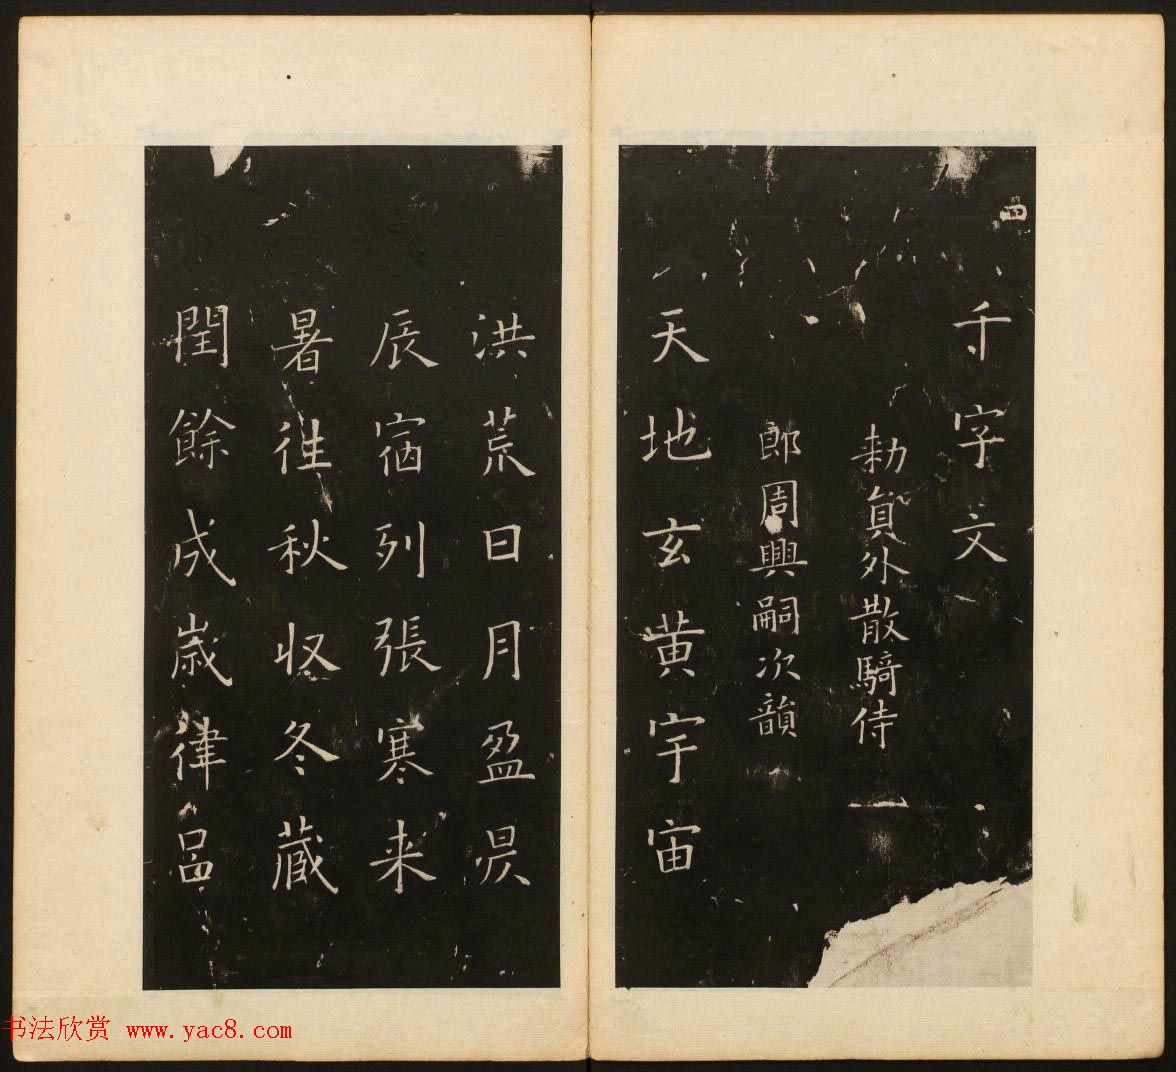 四
千字文
勑員外散騎侍
郎周興嗣次韻
天地玄黄宇宙
洪荒日月盈昃
辰宿列張寒来
暑往秋収冬蔵
閏餘成歳律吕
书法欣赏 www.yac8.com